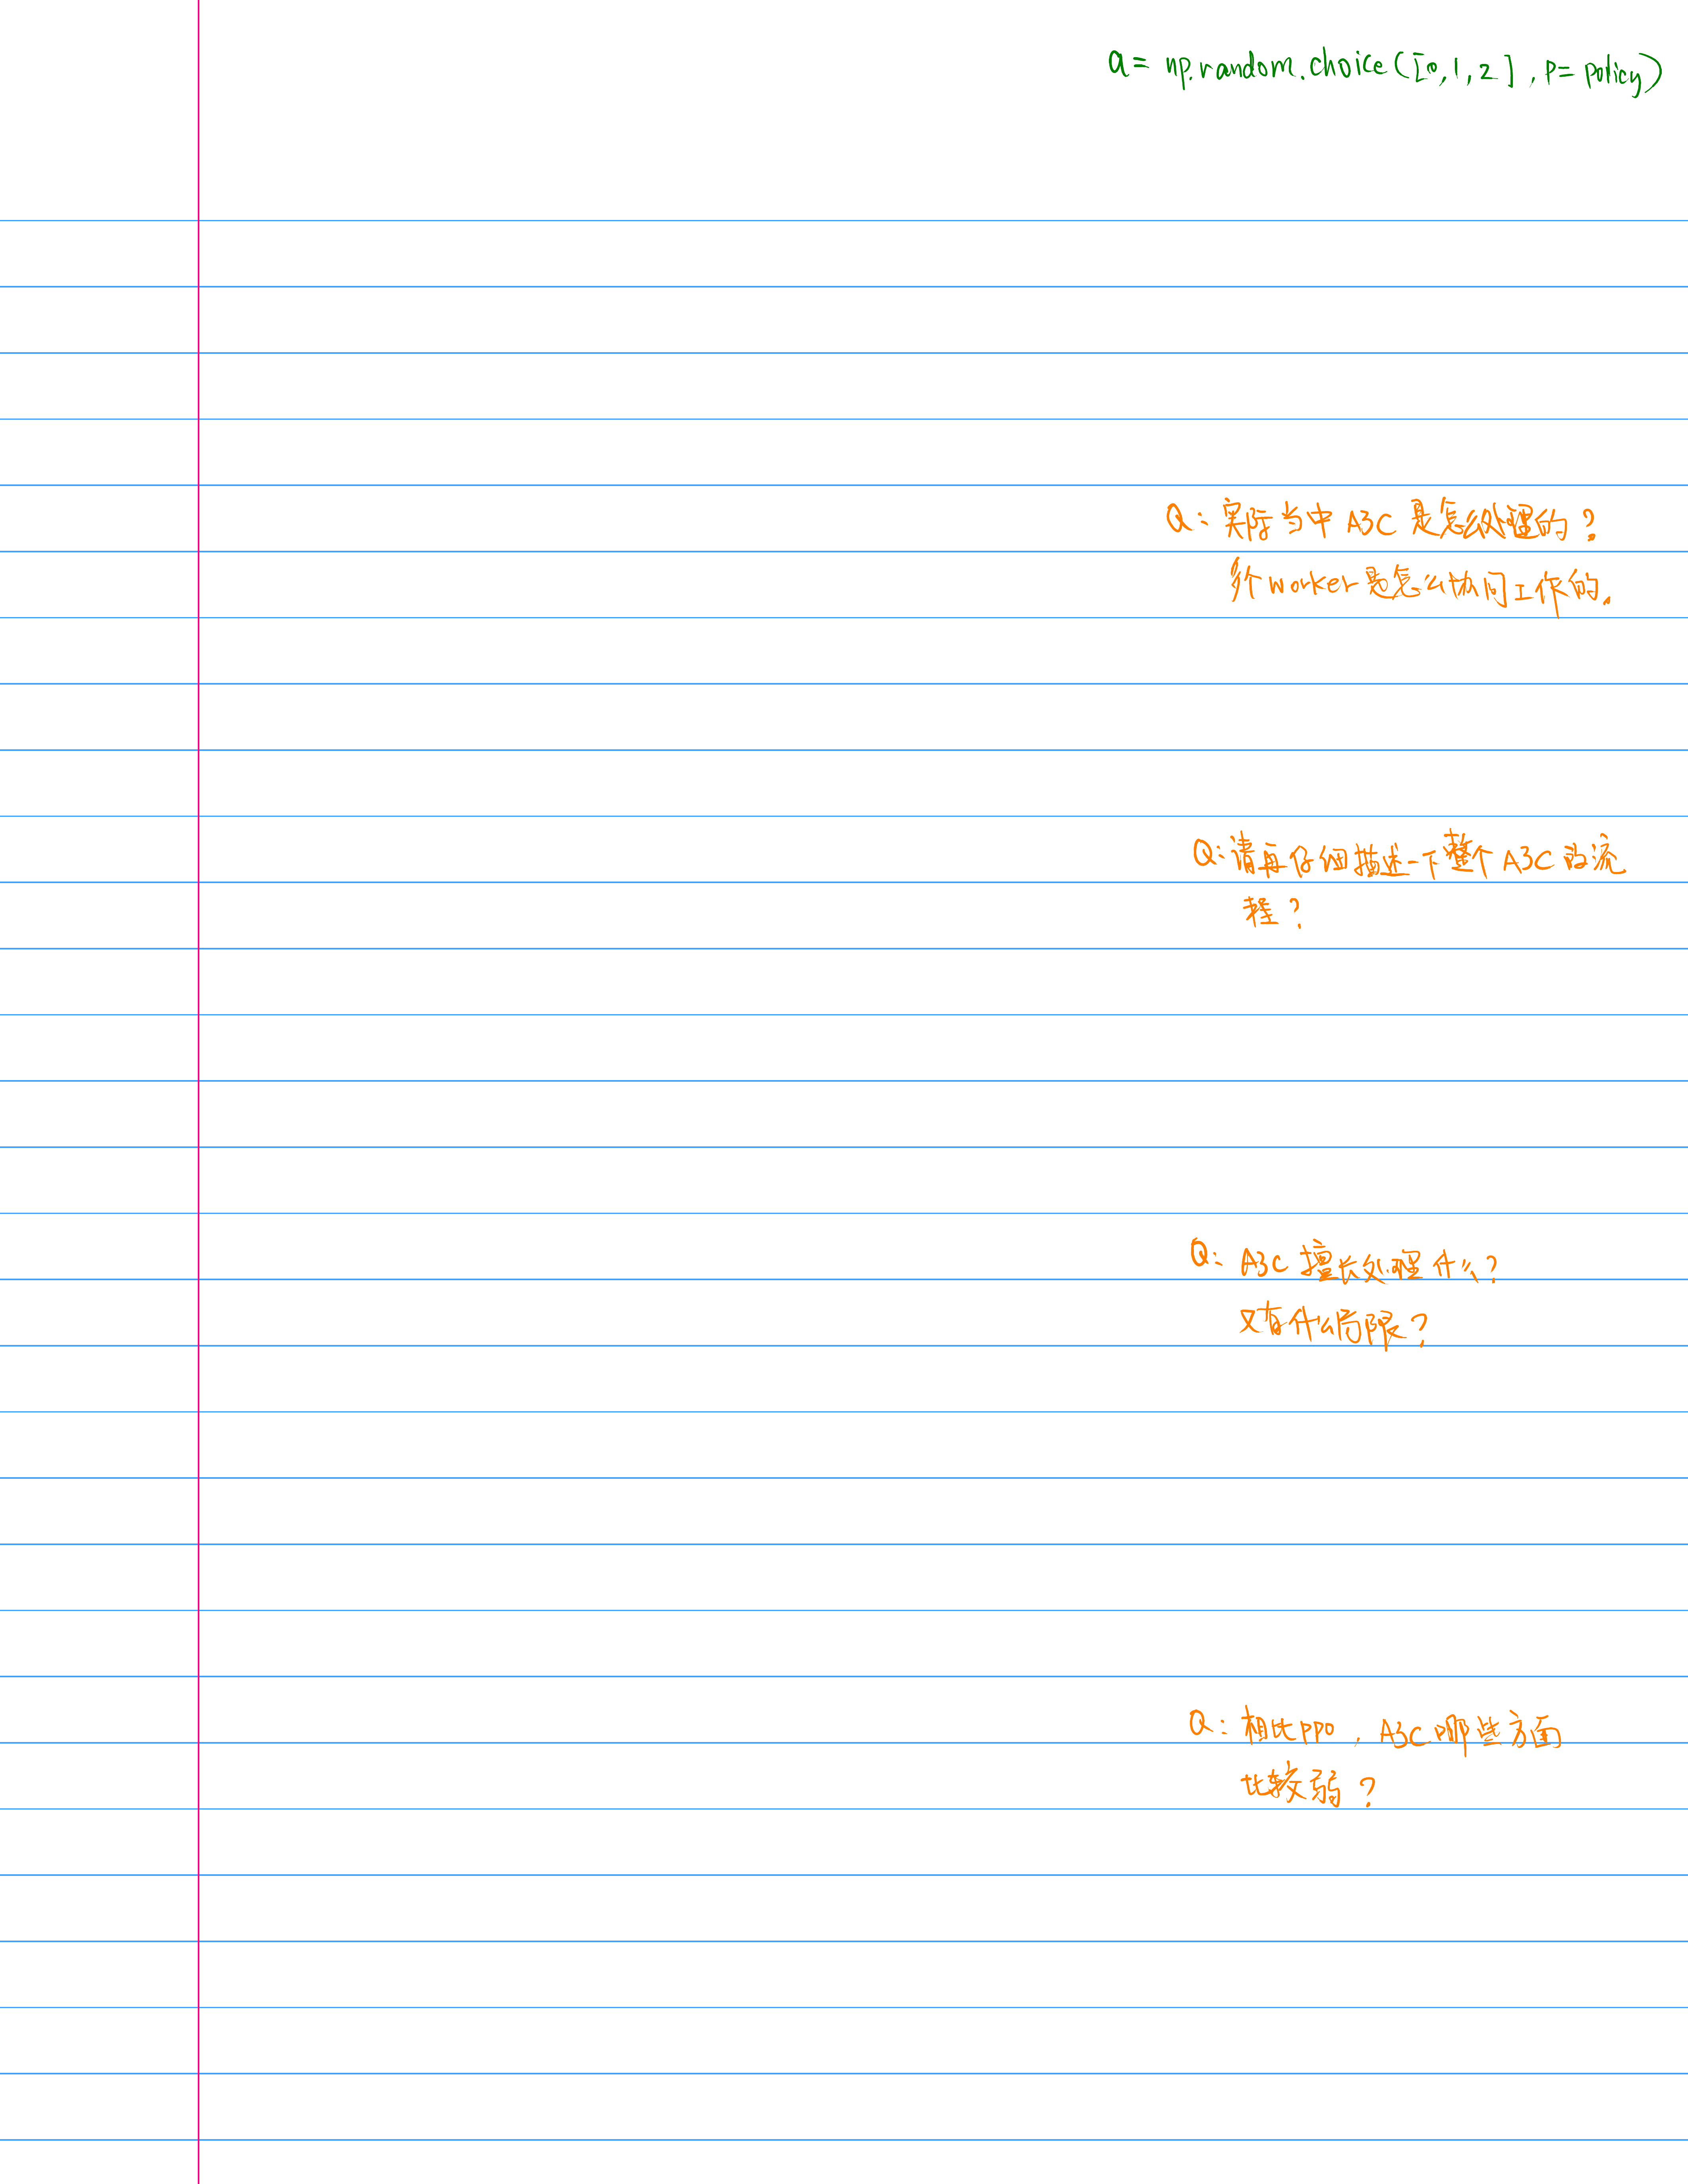 a = np.random.choice([0,1,2], p=policy)
Q: 实际当中 A3C 是怎么处理的？
多个worker是怎么协同工作的.
Q: 请再仔细描述一下整个A3C的流
程？
Q: A3C 擅长处理什么？
又有什么局限？
Q: 相比PPO, A3C 哪些方面
比较弱？